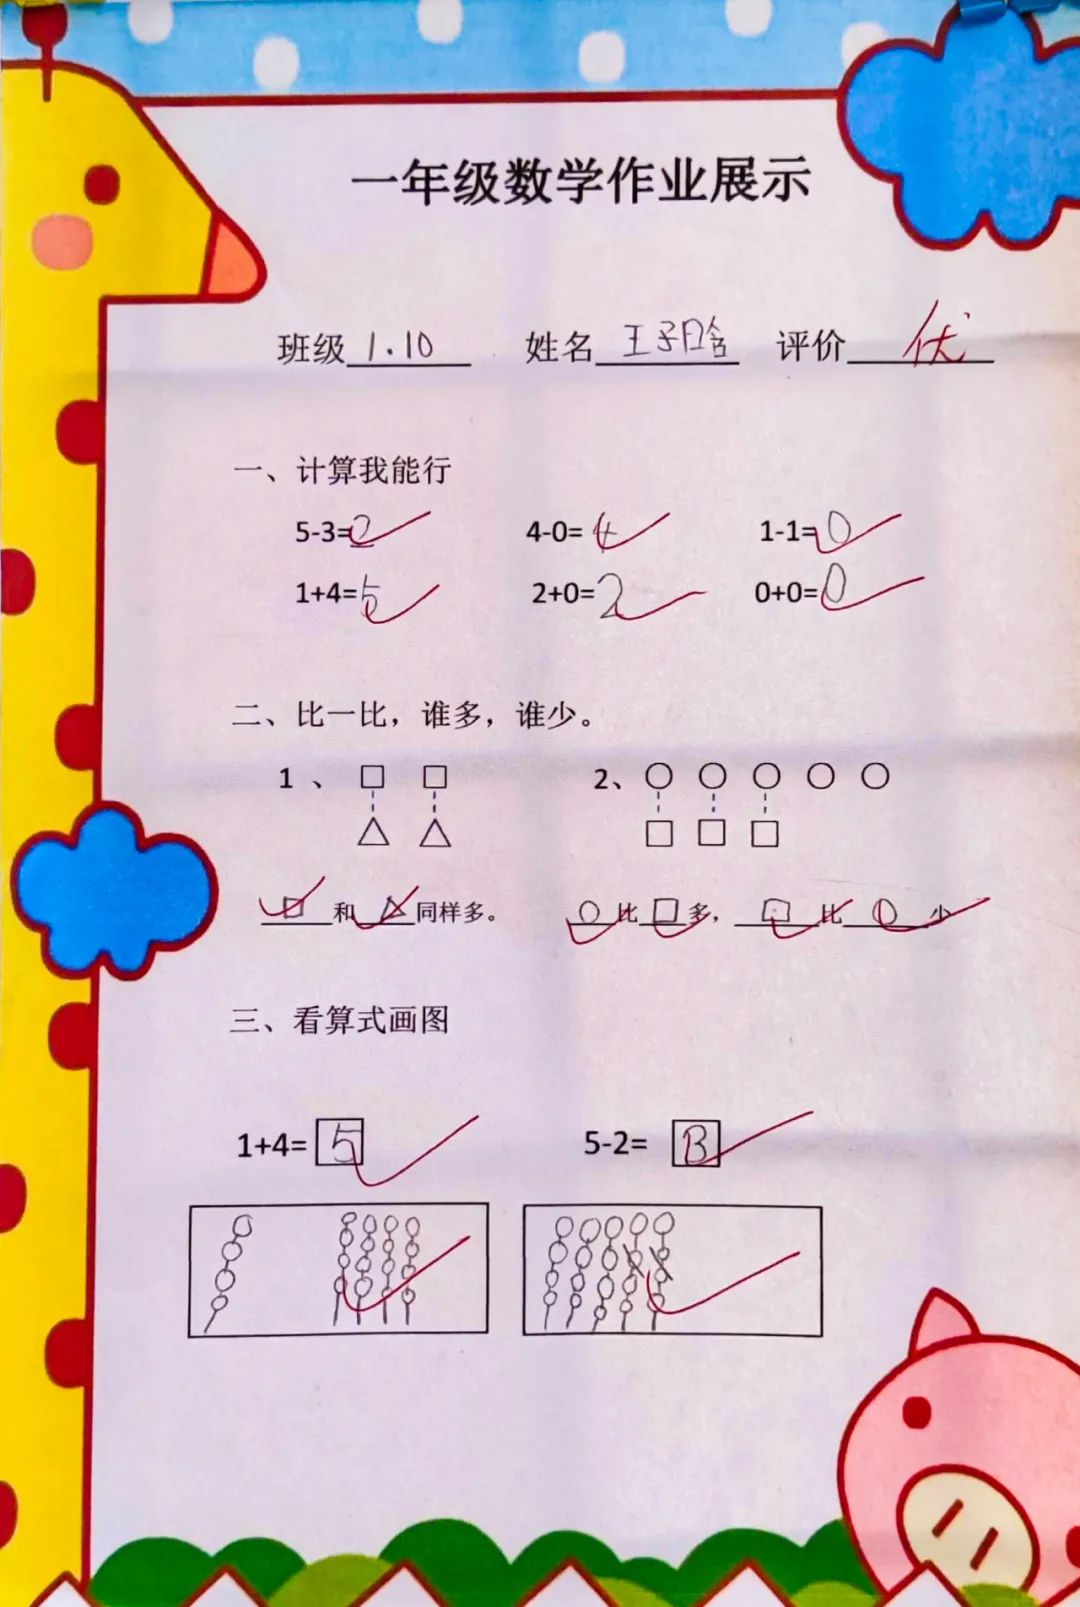 一年级数学作业展示
班级 1.10 姓名 王子晗 评价 优
一、计算我能行
5-3=2 4-0=4 1-1=0
1+4=5 2+0=2 0+0=0
二、比一比，谁多，谁少。
1、□ □ 2、○ ○ ○ ○ ○
△ △ □ □ □
□和△同样多。 ○比□多，□比○少
三、看算式画图
1+4=5 5-2=3